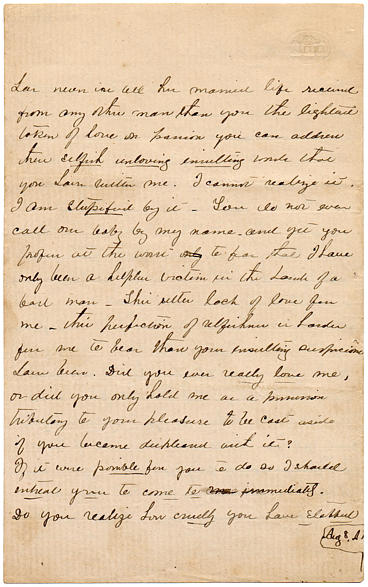 has never in all her married life received
from any other man than you the lightest
token of love or passion you can address
these selfish unloving insulting words that
you have written me. I cannot realize it.
I am stupified by it – You do not even
call our baby by my name – and yet you
profess at the worst only to fear that I have
only been a helpless victim in the hands of a
bad man – This utter lack of love for
me – this perfection of selfishness is harder
for me to bear than your insulting suspicions
have been. Did you ever really love me,
or did you only hold me as a
tributary to your pleasure to be cast aside
if you became displeased with it?
If it were possible for you to do so I should
entreat you to come to immediately.
Do you realize how cruelly you have stabbed
Aug 8,